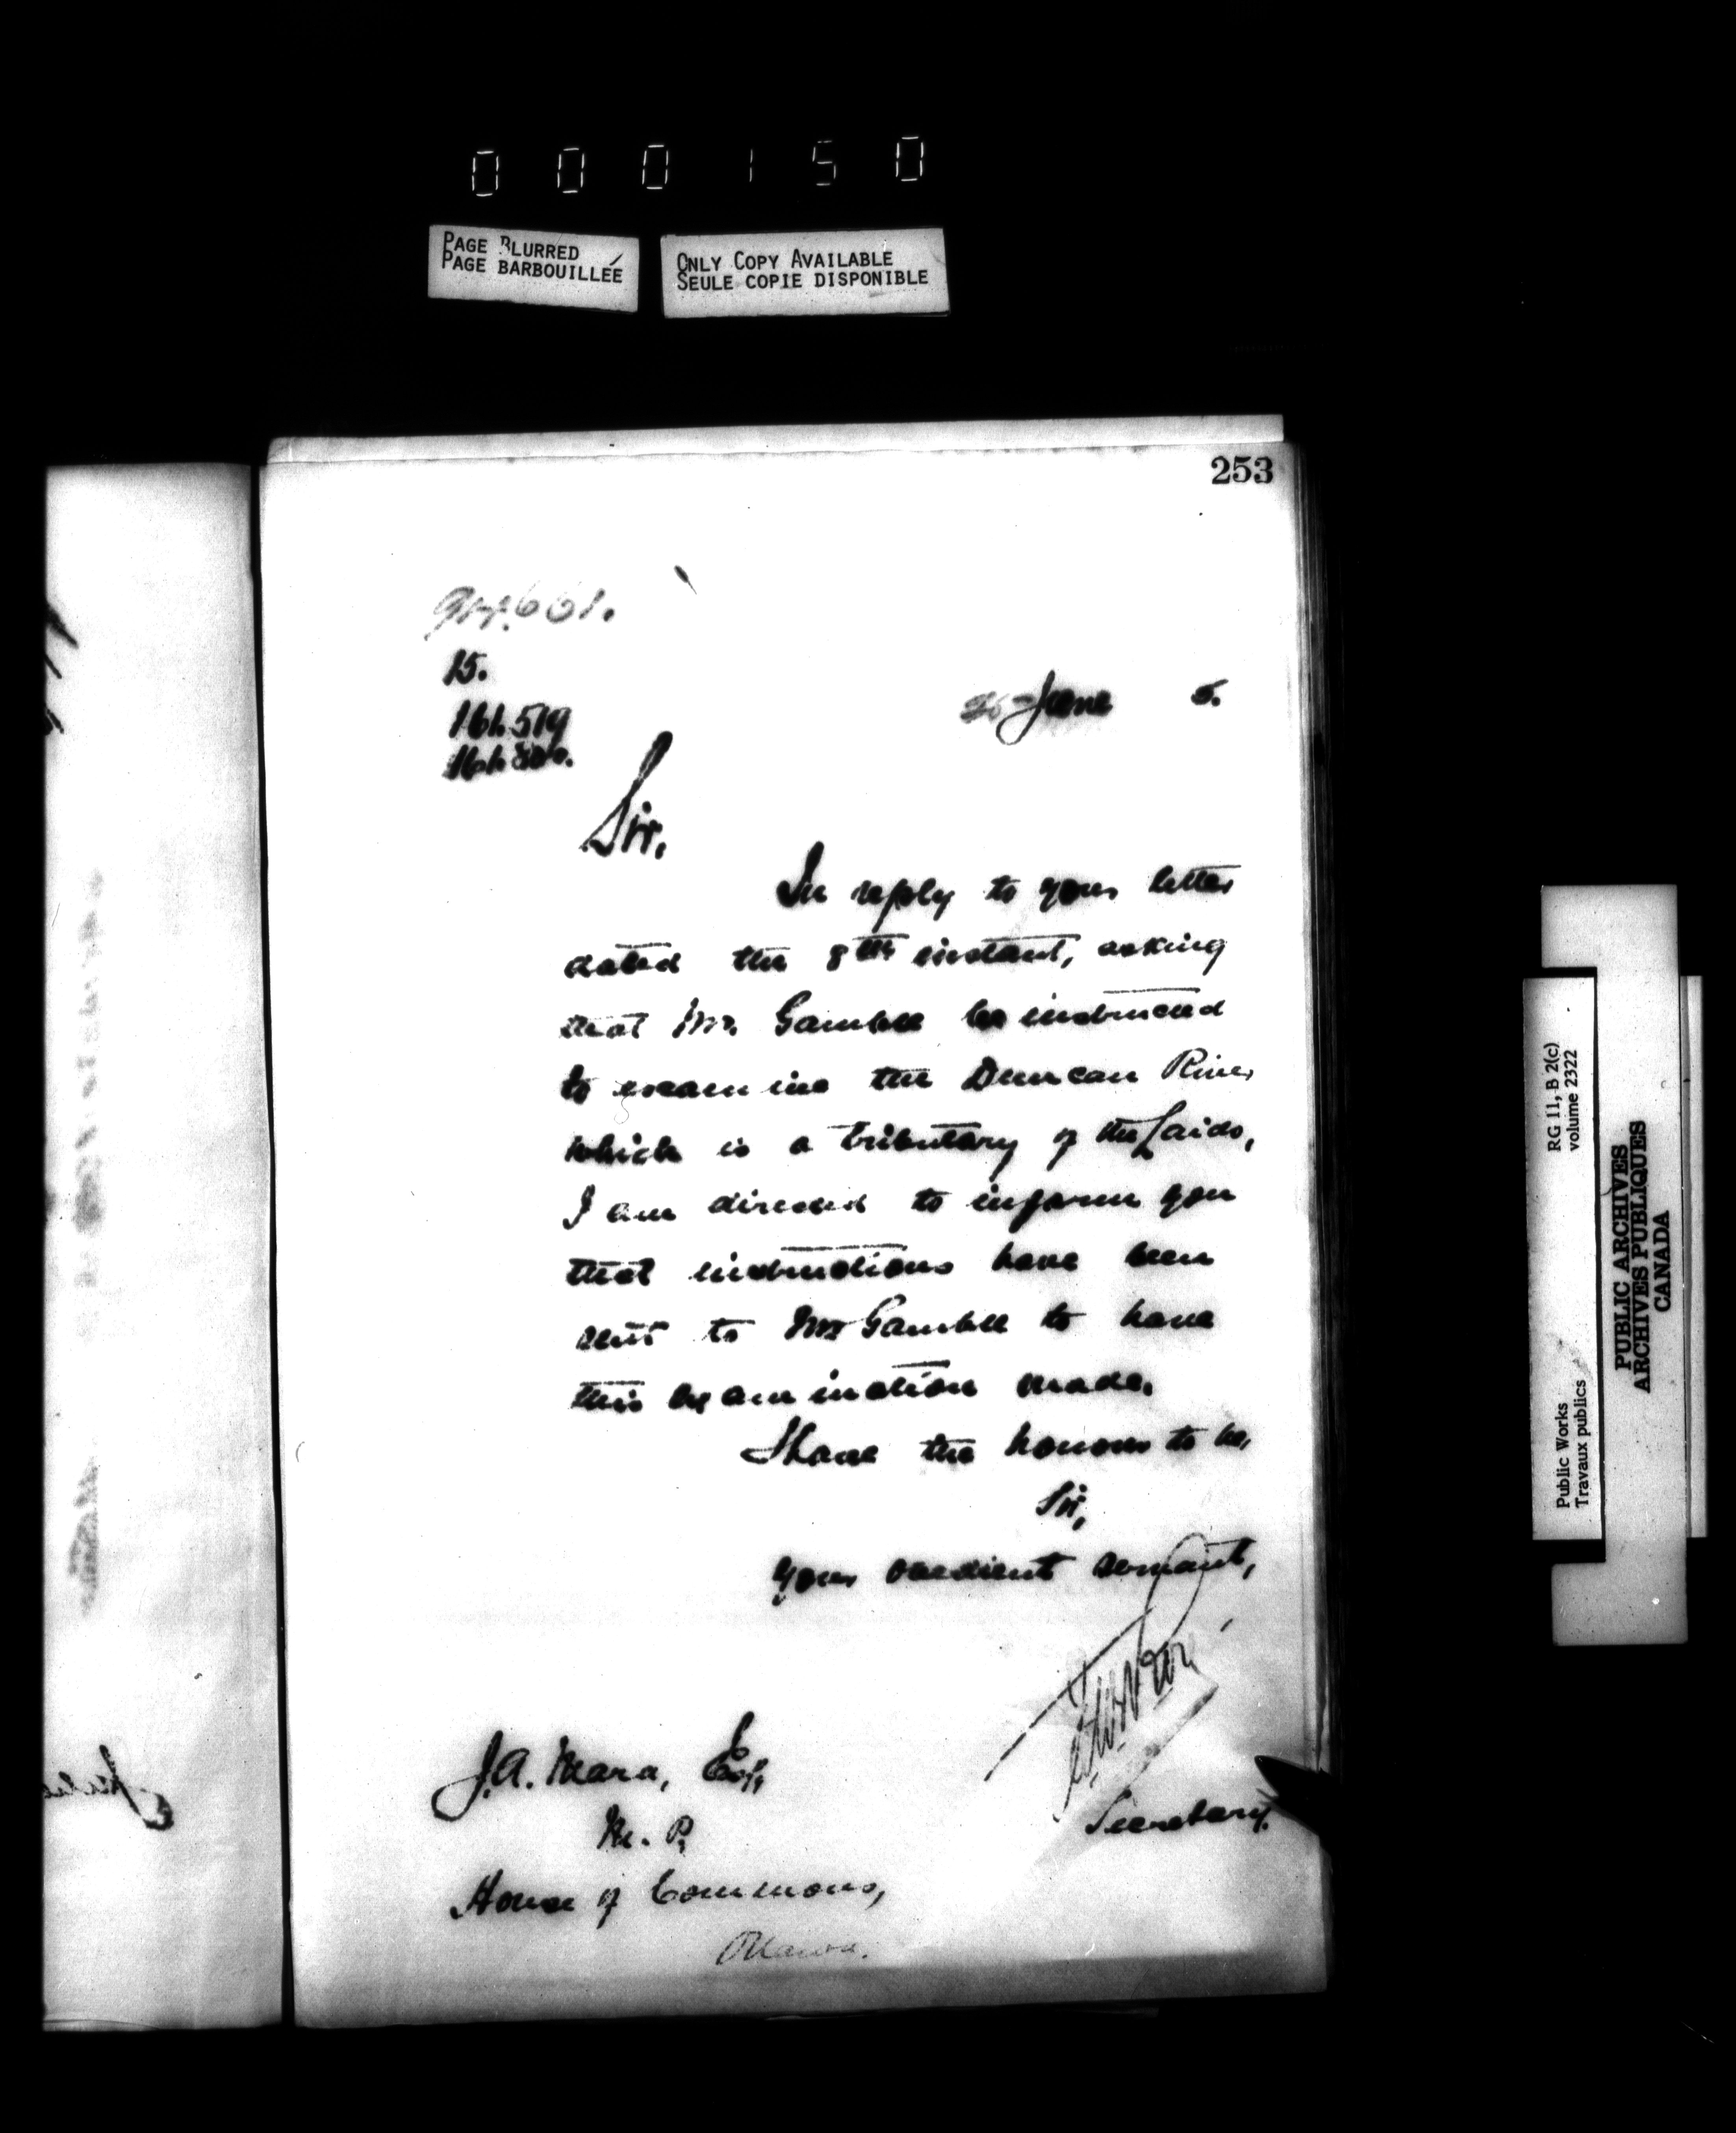 000150
PAGE BLURRED
PAGE BARBOUILLÉE
ONLY COPY AVAILABLE
SEULE COPIE DISPONIBLE
253
15.
June 5.
Sir,
In reply to your letter
dated the 8th instant, asking
that Mr. Gamble be instructed
to examine the Duncan River
which is a tributary of the Lardo,
I am directed to inform you
that instructions have been
sent to Mr Gamble to have
this examination made.
I have the honour to be,
Sir,
Your obedient servant,
Secretary.
J.A. Mara, Esq,
M. P.
House of Commons,
Ottawa.
RG 11, B 2(c)
volume 2322
Public Works
Travaux publics
PUBLIC ARCHIVES
ARCHIVES PUBLIQUES
CANADA